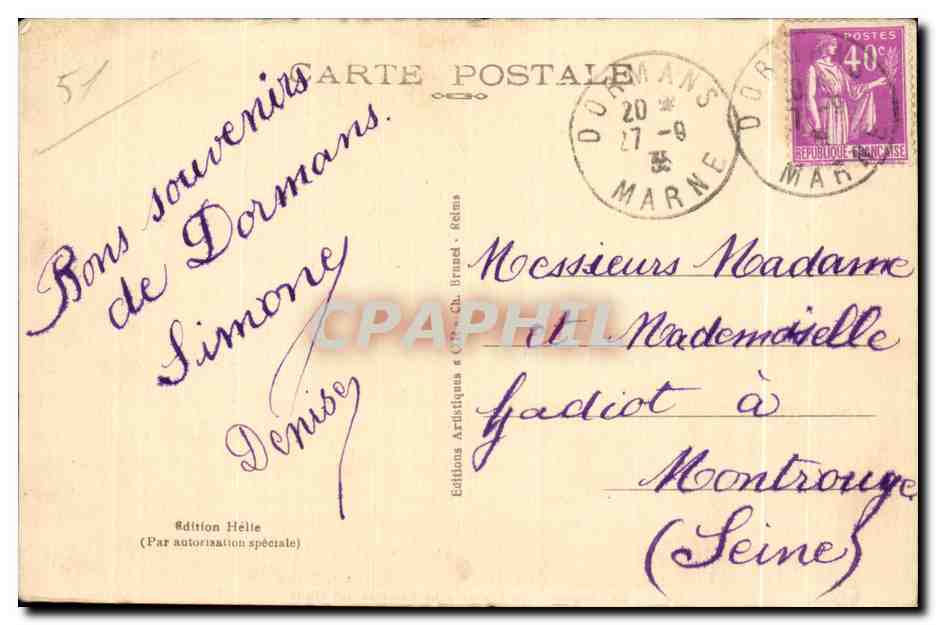 51
CARTE POSTALE
Bons souvenirs
de Dormans.
Simone
Denise
Edition Hélie
(Par autorisation spéciale)
Editions Artistiques "OR" - Ch. Brunel - Reims
DORMANS
20 *
27 -9
35
MARNE
DOR
MARNE
POSTES
40c
REPUBLIQUE-FRANCAISE
Messieurs Madame
et Mademoiselle
Gadiot à
Montrouge
(Seine)
CPAPHIL